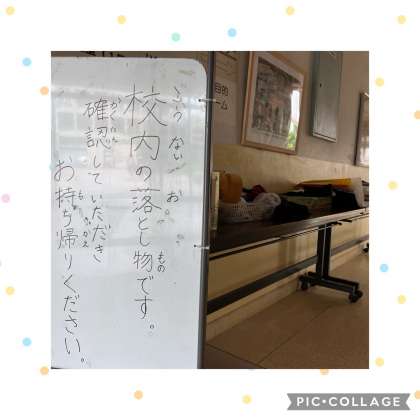 こう ない お もの
校内の落とし物です。
かくにん
確認していただき
も かえ
お持ち帰りください。
PIC•COLLAGE